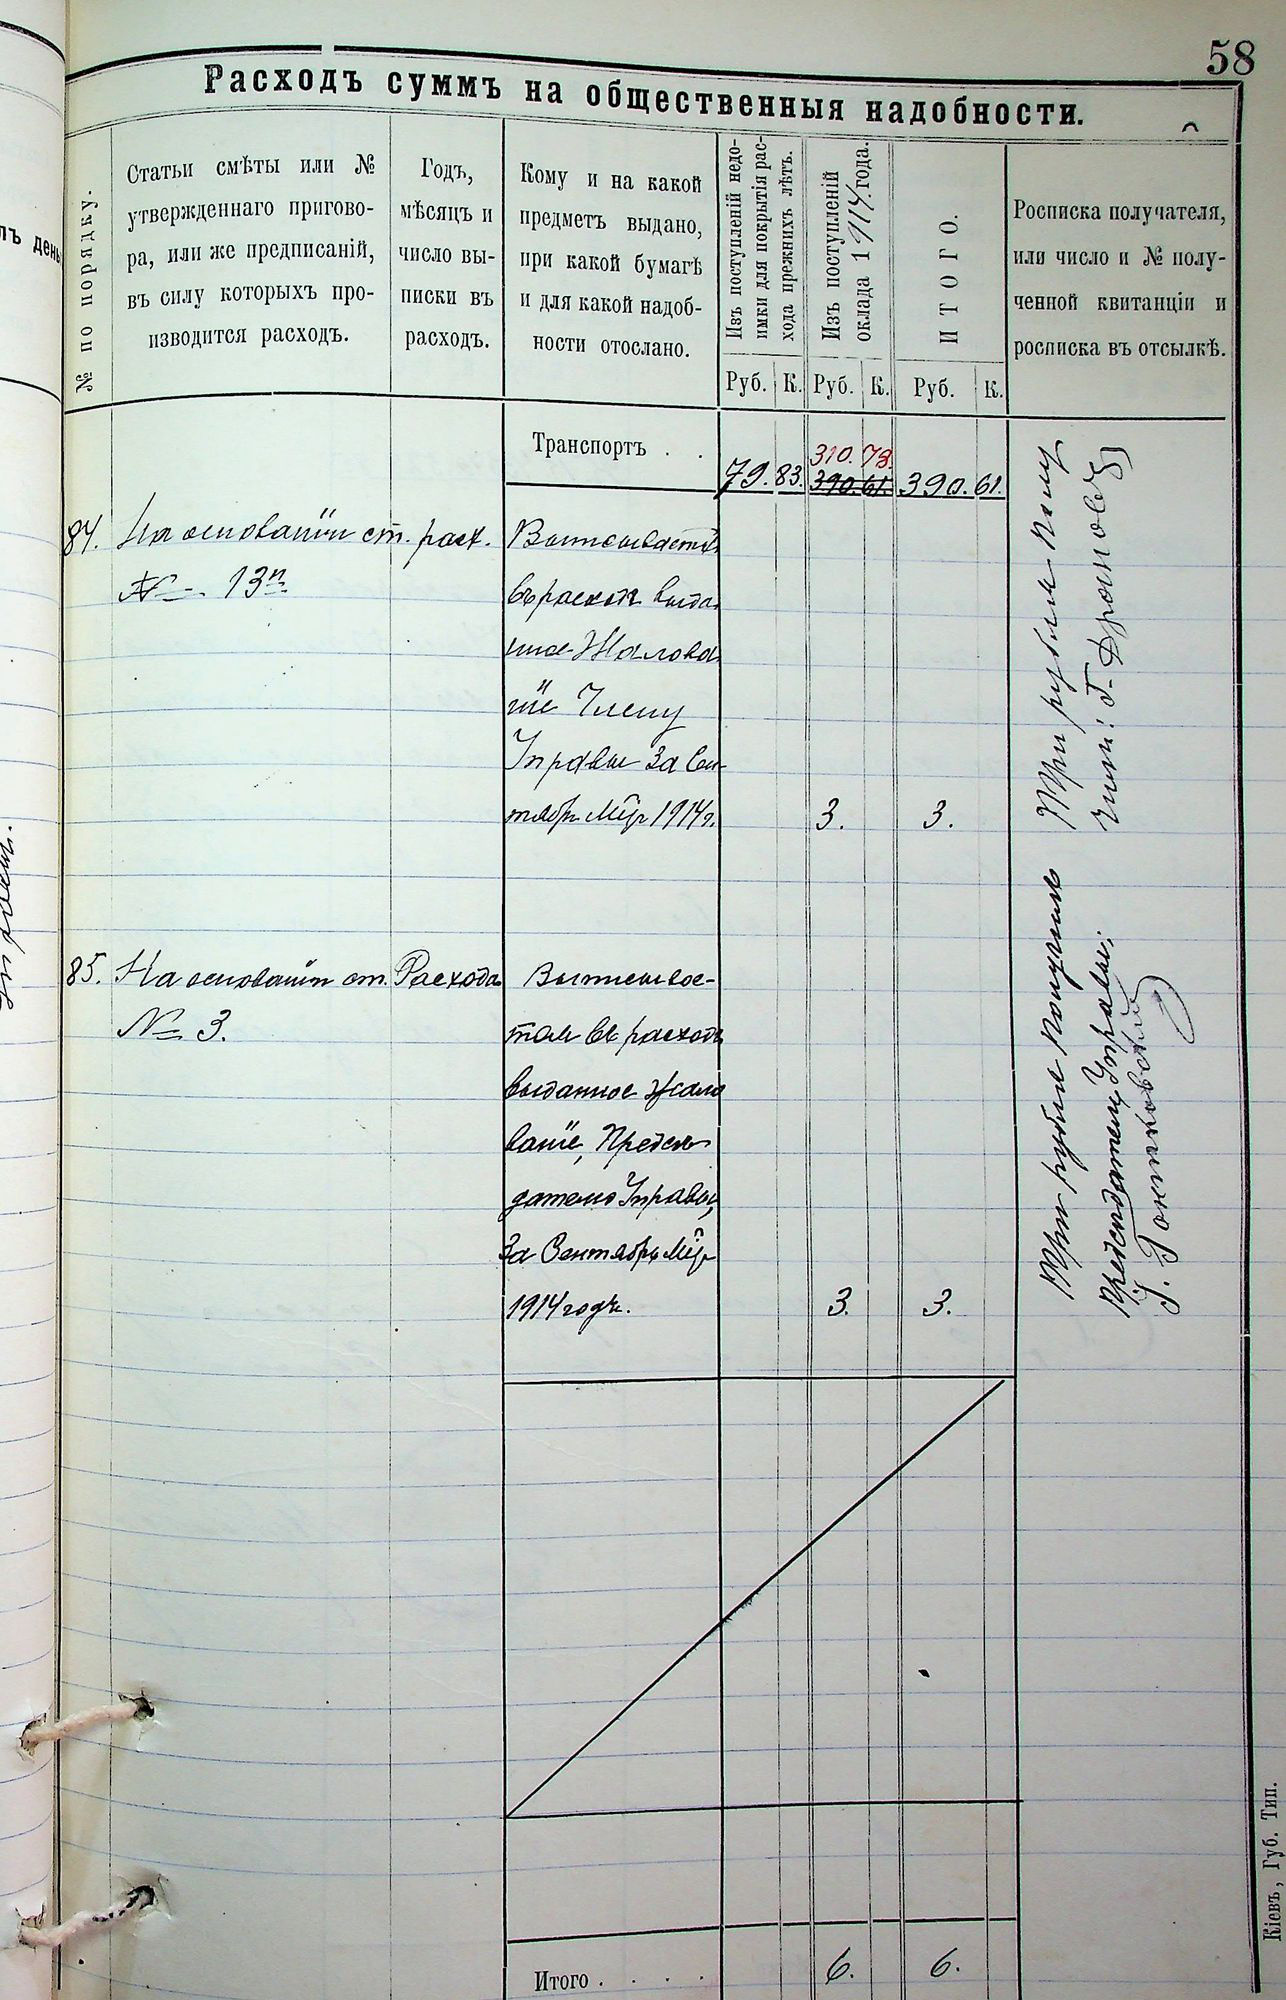 58
Расходъ суммъ на общественныя надобности.
№ по порядку.
Статьи смѣты или №
утвержденнаго пригово-
ра, или же предписаній,
въ силу которыхъ про-
изводится расходъ.
Годъ,
мѣсяцъ и
число вы-
писки въ
расходъ.
Кому и на какой
предметъ выдано,
при какой бумагѣ
и для какой надоб-
ности отослано.
Изъ поступленій недо-
имки для покрытія рас-
хода прежнихъ лѣтъ.
Изъ поступленій
оклада 1914 года.
ИТОГО.
Росписка получателя,
или число и № полу-
ченной квитанціи и
росписка въ отсылкѣ.
Руб. К. Руб. К. Руб. К.
310. 78.
Транспортъ . . 79. 83. 390. 61. 390. 61.
84. На основаніи ст. расх.
№ 13
Выписывается
въ расходъ выда
ное Жалова
ніе Члену
Управы За Сен
тябрь Мцъ 1914 г. 3. 3.
Три рубля
85. На основаніи ст. Расхода
№ 3.
Выписывае-
тся въ расходъ
выданное жало
ваніе, Предсѣ
дателю Управы,
За Сентябрь Мцъ
1914 годъ. 3. 3.
Три рубля получилъ
Предсѣдатель Управы:
Итого . . . . 6. 6.
Кіевъ, Губ. Тип.